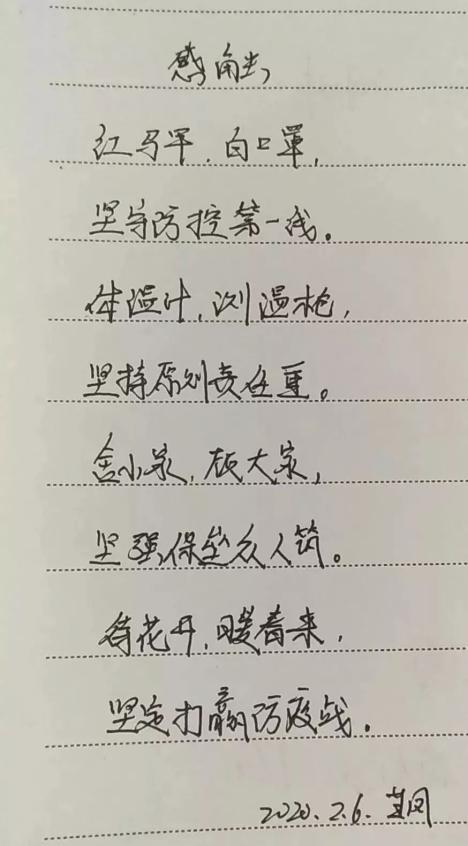 感触
红马甲，白口罩，
坚守防控第一线。
体温计，测温枪，
坚持原则责任重。
舍小家，顾大家，
坚强保垒众人筑。
待花开，暖春来，
坚定打赢防疫战。
2020.2.6.